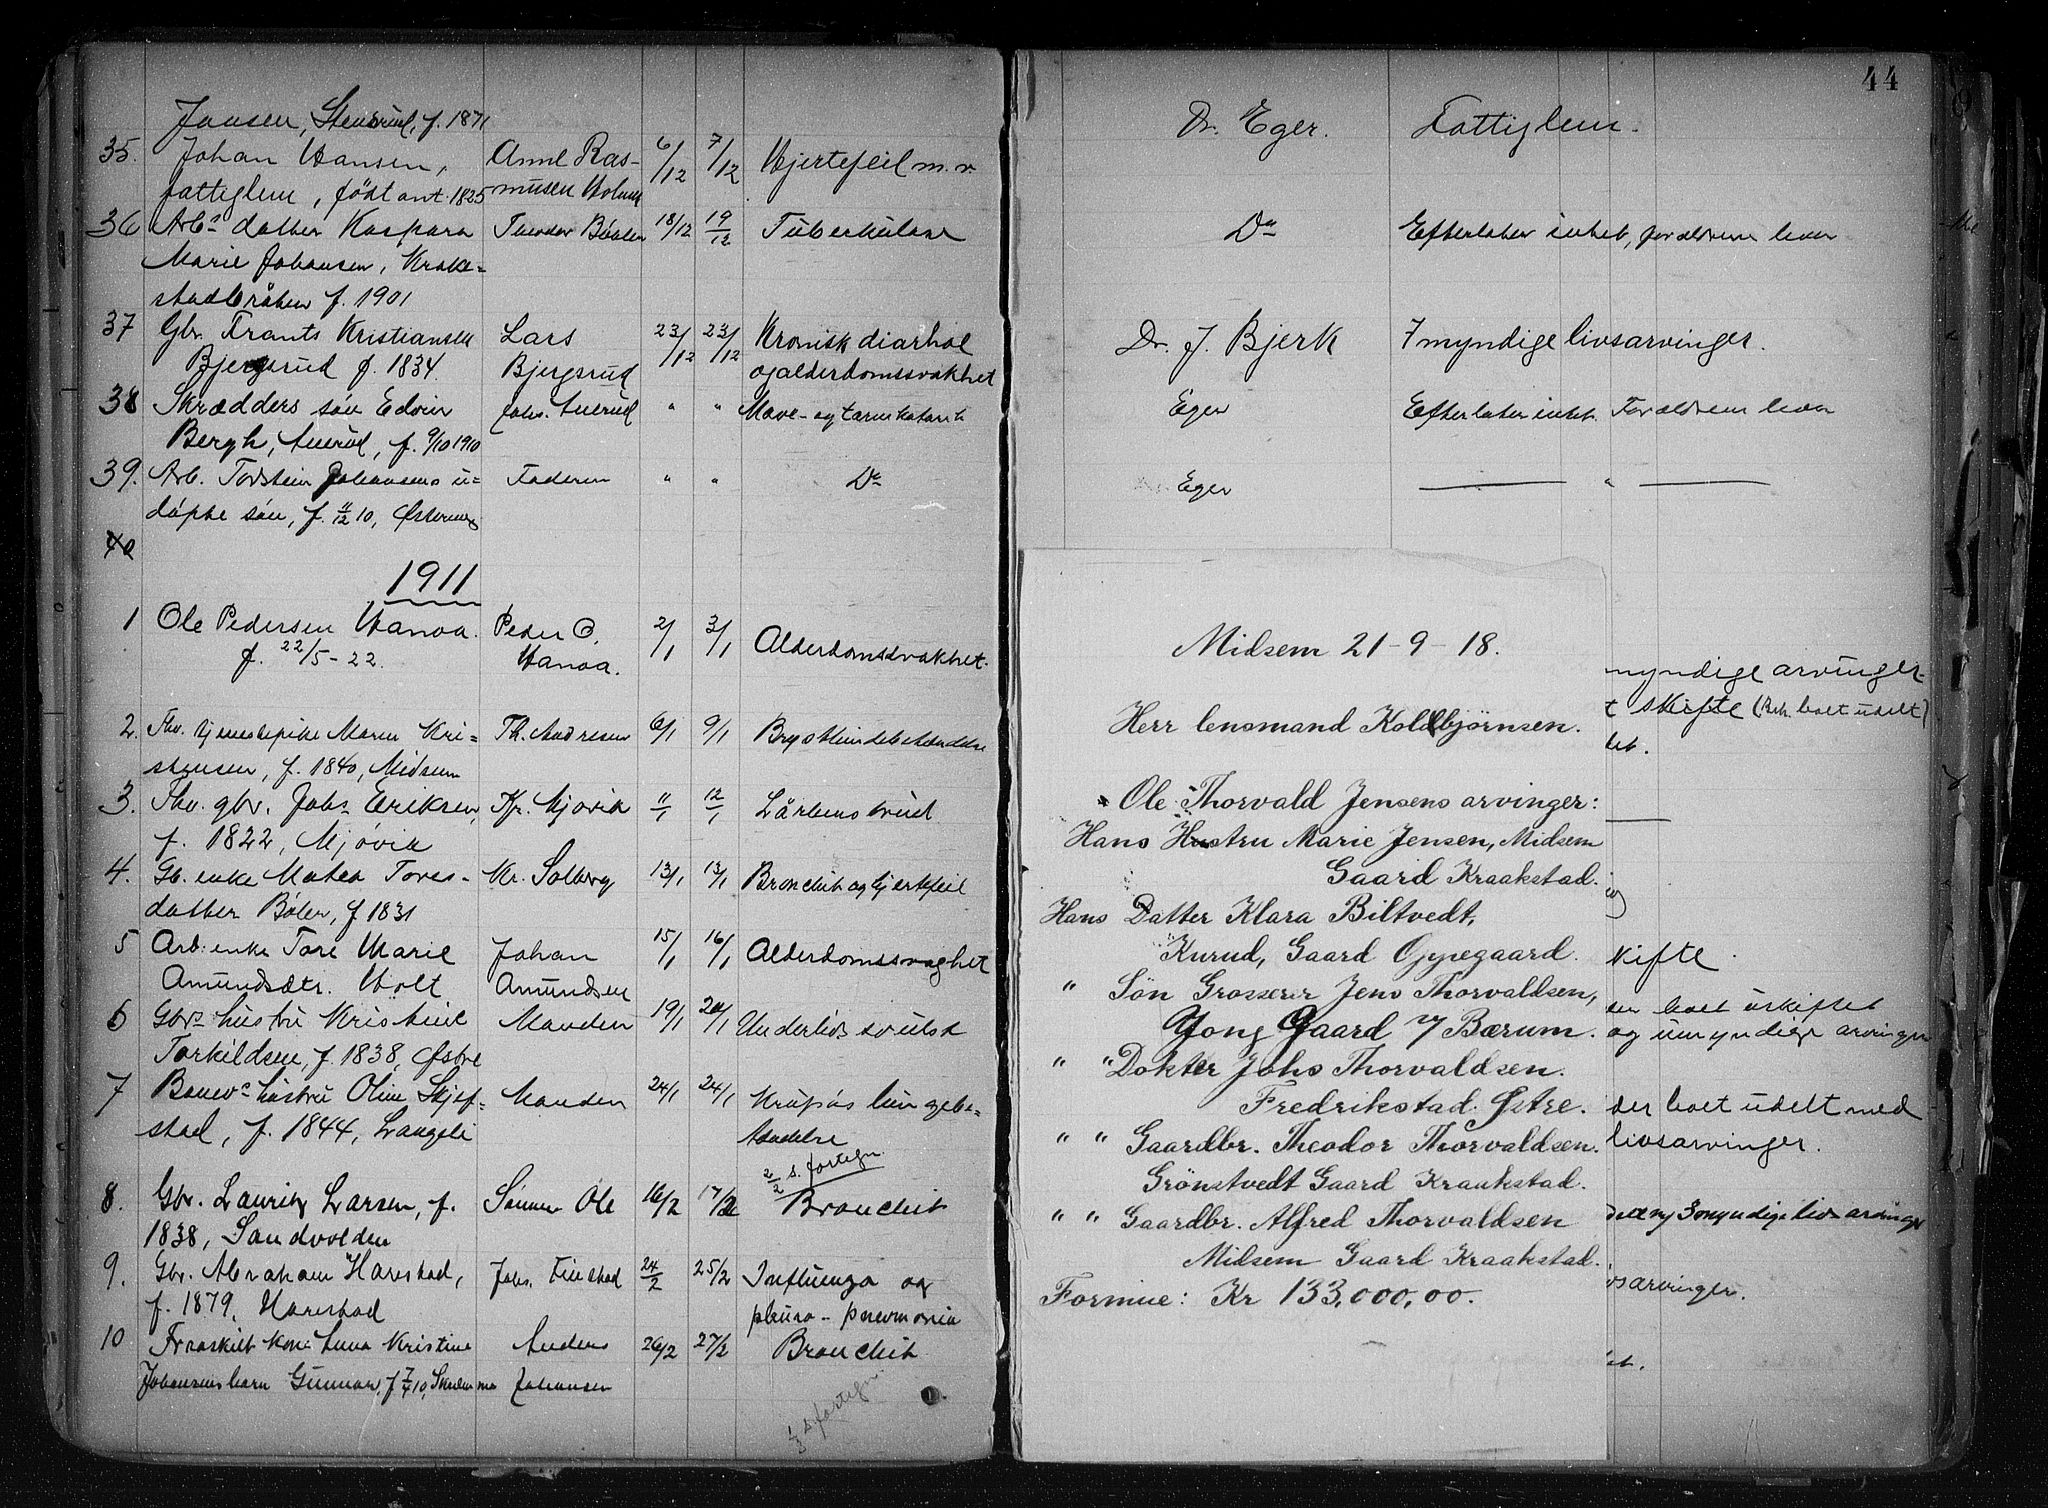 44
Jansen, Stensrud, f. 1871
Dr. Eger. Fattiglem.
35. Johan Hansen, Anne Ras- 6/12 7/12 Hjertefeil m. v.
fattiglem, født omt. 1825 musen Holum
36 Arbs datter Kaspara Theodor Bøler 18/12 19/12 Tuberkulose Do Efterlater intet, forældrene lever
Marie Johansen, Krake-
stadbråten f. 1901
37 Gbr. Frants Kristiansen Lars 23/12 23/12 Kronisk diarhoe Dr. J. Bjerk 7 myndige livsarvinger.
Bjergsrud f. 1834. Bjergsrud og alderdomssvakhet
38 Skrædders søn Edvin Johs. Auerud " " Mave- og tarmkatarrh Eger Efterlater intet. Forældrene lever
Bergh, Auerud, f. 9/10 1910
39. Arb. Torstein Johansens u- Faderen " " Do Eger "
døpte søn, f. 11/12 10,
40
1911
1 Ole Pedersen Hanoa. Peder O. 2/1 3/1 Alderdomssvakhet.
f. 22/5-22. Hanoa.
2. Fhv. tjenestepike Maren Kri- Th. Andresen 6/1 9/1 Brysthindebetændelse
stensen, f. 1840, Midsem
3. Fhv. gbr. Johs Eriksen, Kr. Mjøvik 11/1 12/1 Lårbensbrud
f. 1822, Mjøvik
4. Gb. enke Mathea Tores- Kr. Solberg 13/1 13/1 Bronchit og hjertefeil
datter Bøler, f 1831
5 Arb. enke Tore Marie Johan 15/1 16/1 Alderdomssvaghet
Amundsdtr. Holt Amundsen
6 Gbrs hustru Kristine Manden 19/1 20/1 Underlivssvulst
Torkildsen, f. 1838, Østre
7 Banevs hustru Oline Skjef- Manden 24/1 24/1 Krupøs lungebe-
stad, f. 1844, Langeli tændelse
2/2 s. fortegn.
8. Gbr. Lauritz Larsen, f. Sønnen Ole 16/2 17/2 Bronchit
1838, Sandvolden
9. Gbr. Abraham Harestad, Johs. Finstad 24/2 25/2 Influenza og
f. 1879, Harestad pleuro-pneumonia
10 Fraskilt kone Anna Kristine Anders 26/2 27/2 Bronchit
Johansens barn Gunnar, f 7/4 10, Johansen
1/3 s. fortegn
Midsem 21-9-18.
Herr lensmand Kolbjørnsen.
Ole Thorvald Jensens arvinger:
Hans Hustru Marie Jensen, Midsem
Gaard Kraakstad.
Hans Datter Klara Biltvedt,
Kurud, Gaard Opegaard.
" Søn Grosserer Jens Thorvaldsen,
Yong Gaard V Bærum.
" " Dokter Johs Thorvaldsen.
Fredrikstad Østre.
" " Gaardbr. Theodor Thorvaldsen.
Grønstvedt Gaard Kraakstad.
" " Gaardbr. Alfred Thorvaldsen
Midsem Gaard Kraakstad.
Formue: Kr 133,000,00.
myndige arvinger
t skifte (Beh. boet udelt)
tet.
kifte.
den boet uskiftet
og umyndige arvinger
der boet udelt med
livsarvinger.
3 myndige livsarvinger
vsarvinger.
et.